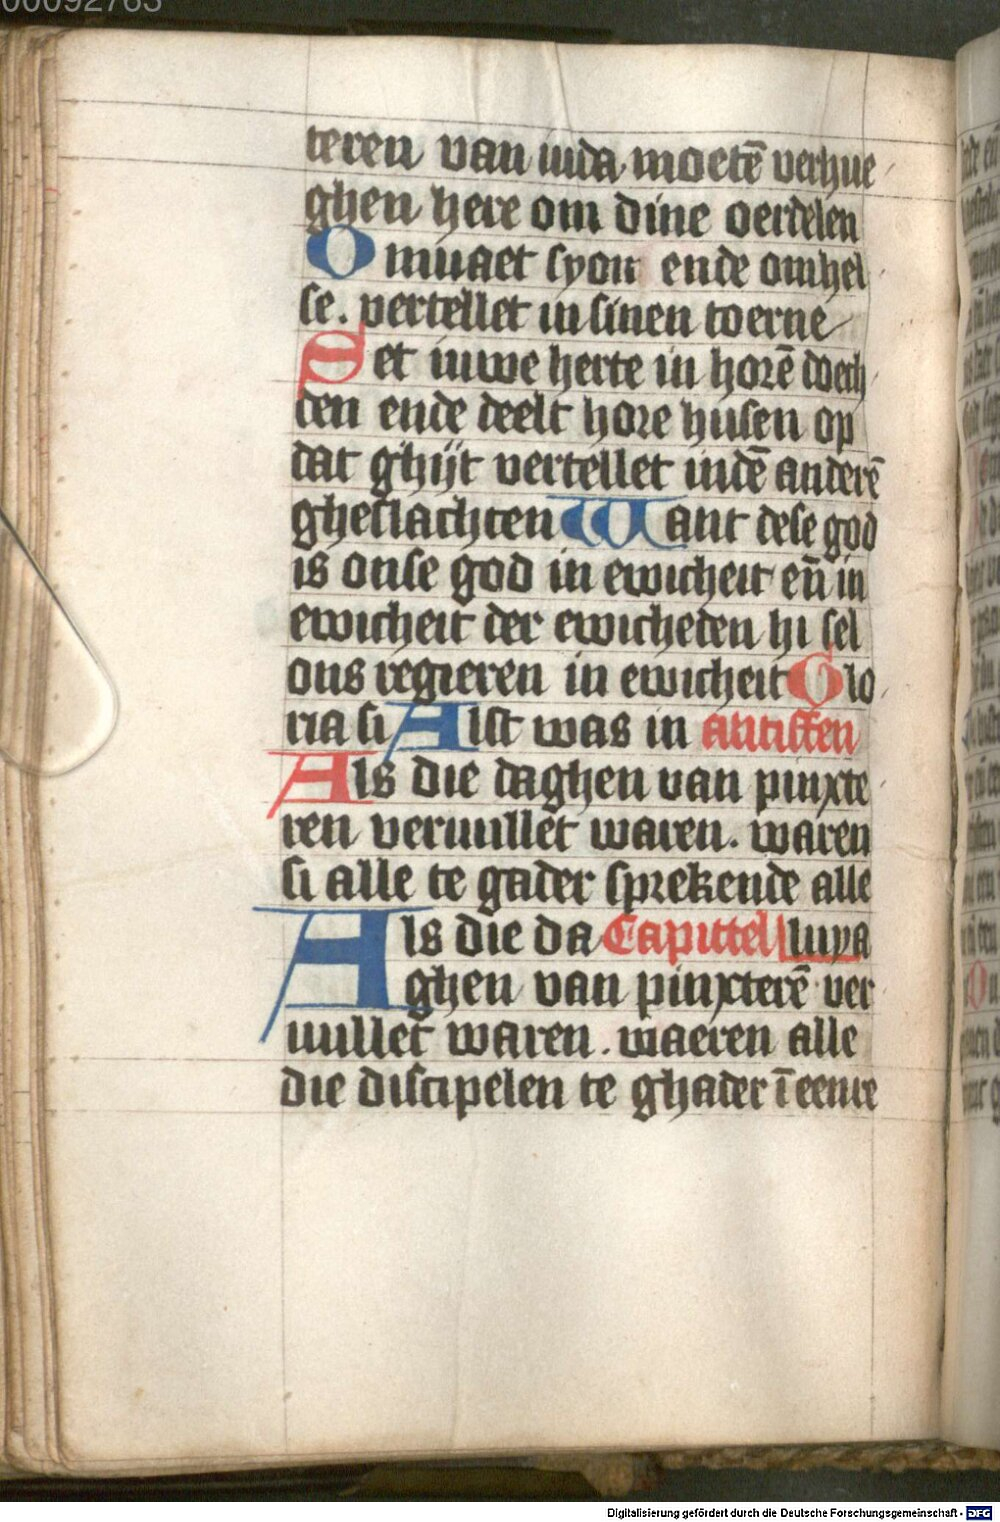 00092763
teren van iuda moetē verhue
ghen here om dine oerdelen
Omuaet syon ende omhel
se. vertellet in sinen toerne
Set iuwe herte in horē doech
den ende deelt hore husen op
dat ghijt vertellet indē anderē
gheslachten Want dese god
is onse god in ewicheit eñ in
ewicheit der ewicheden hi sel
ons regieren in ewicheit Glo
ria si Alst was in antiffen
Als die daghen van pinxte
ren veruullet waren. waren
si alle te gader sprekende alle
Als die da Capittel luya
ghen van pinxterē ver
uullet waren. waeren alle
die discipelen te ghader ī eenre
Digitalisierung gefördert durch die Deutsche Forschungsgemeinschaft - DFG